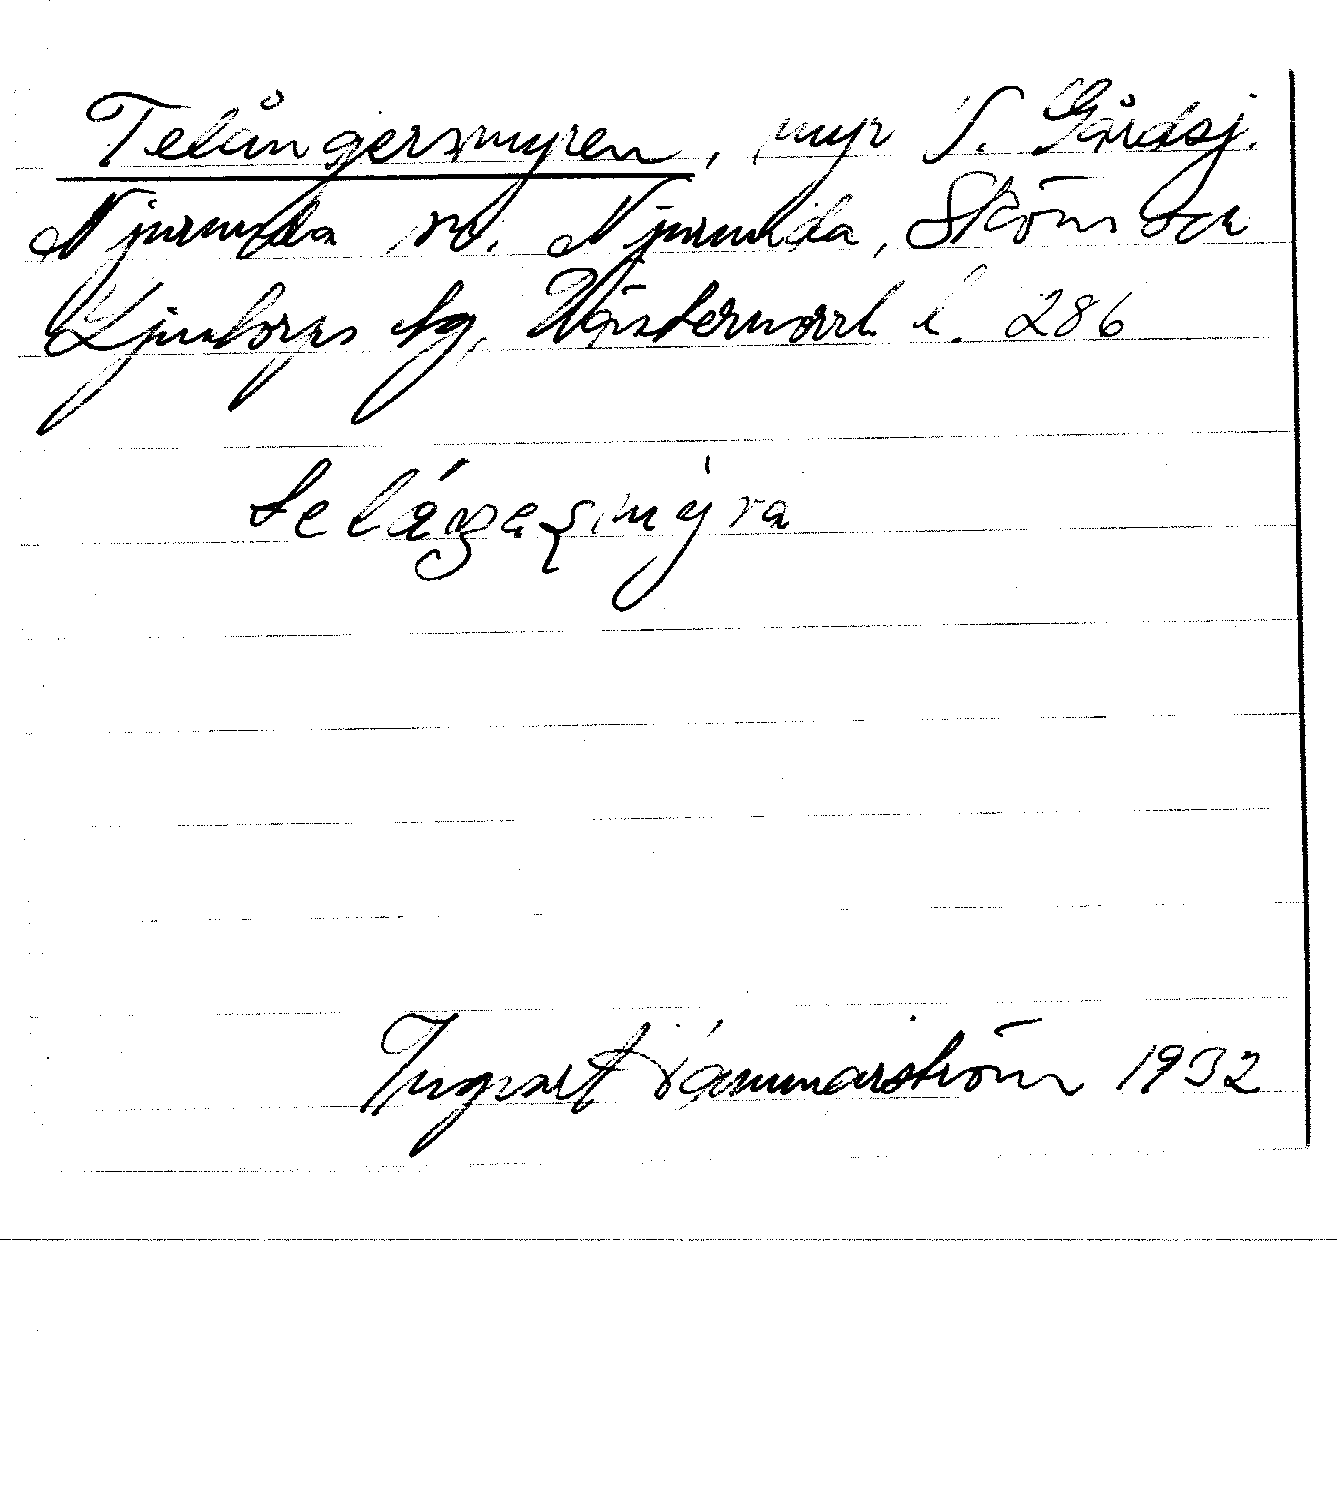 Telångersmyren, myr S. Gårdsj.
Njurunda sn. Njurunda, Sköns och
Ljustorps tg, Västernorrl l. 286
teláŋeʂmýra
Ingvart Hammarström 1932